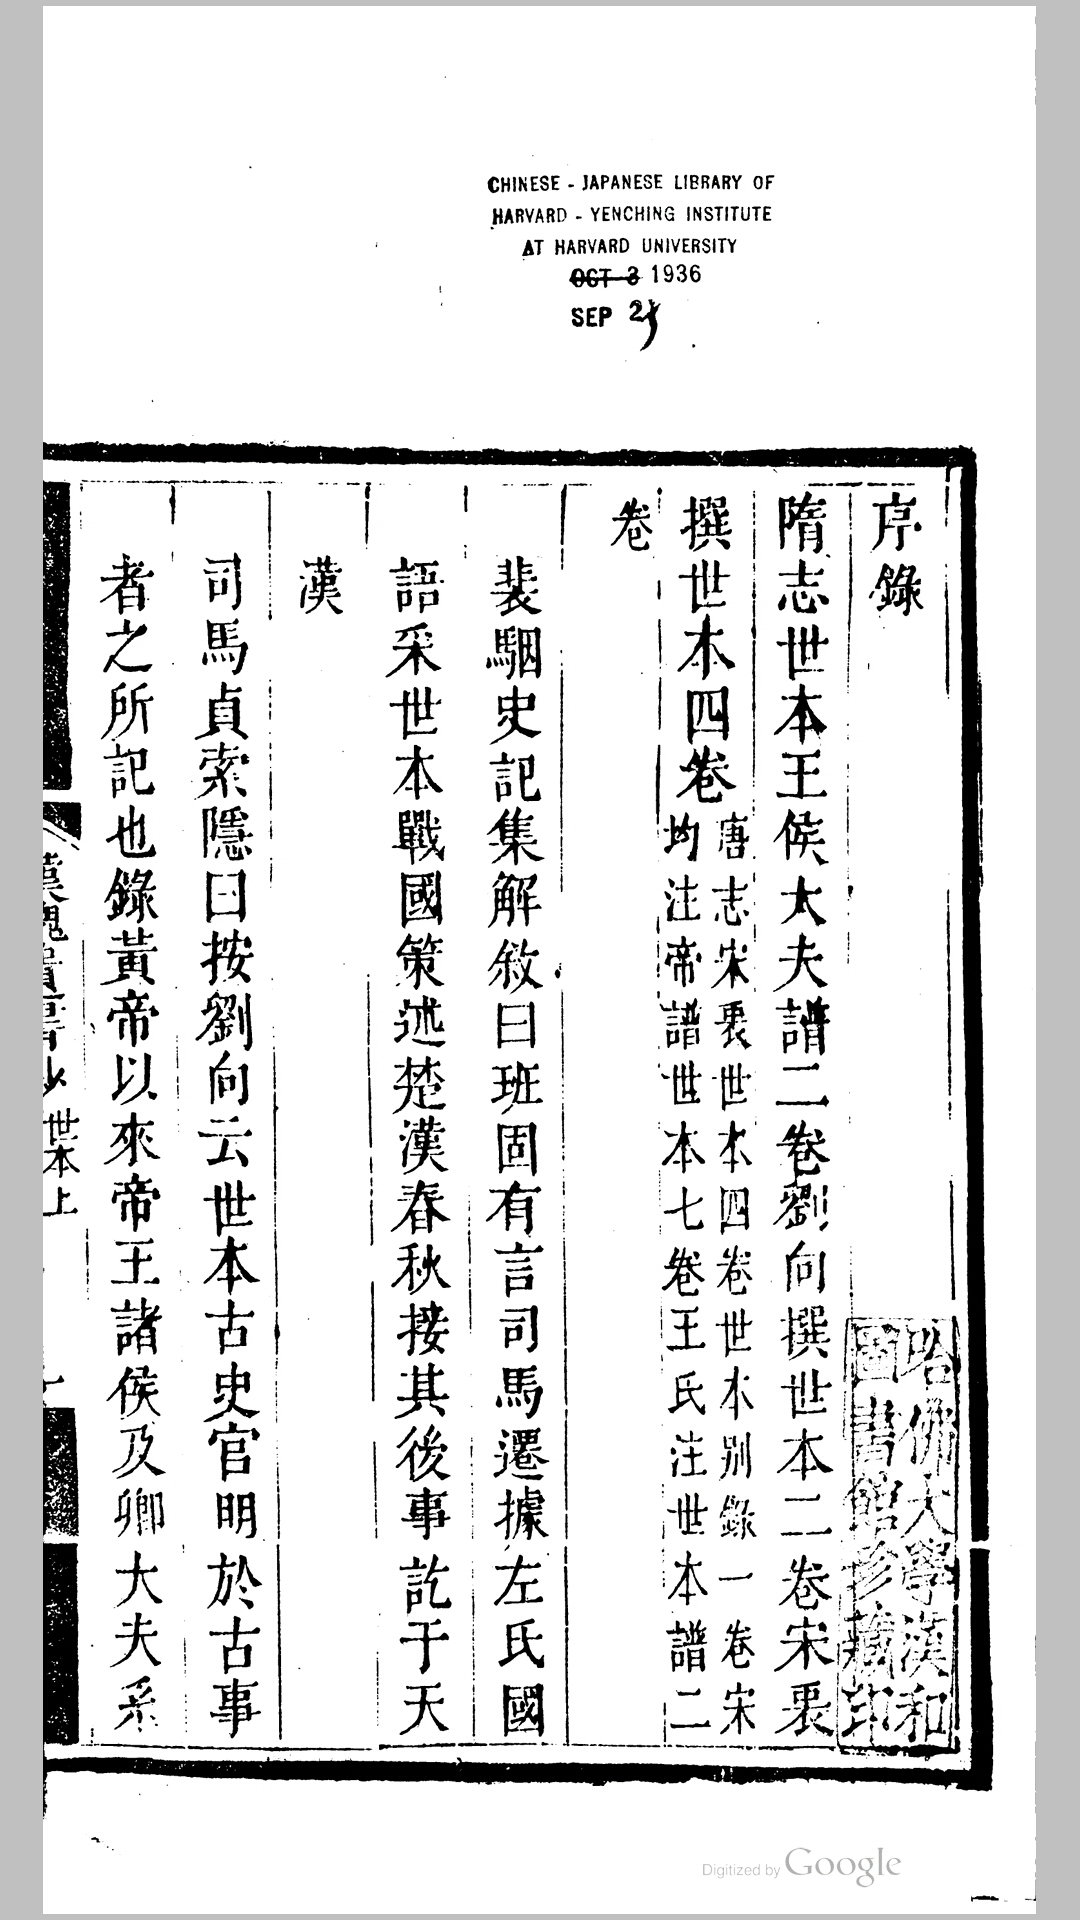 CHINESE - JAPANESE LIBRARY OF
HARVARD - YENCHING INSTITUTE
AT HARVARD UNIVERSITY
OCT 3 1936
SEP 25
序錄
隋志世本王侯大夫譜二卷劉向撰世本二卷宋衷
撰世本四卷
唐志宋衷世本四卷世本別錄一卷宋
均注帝譜世本七卷王氏注世本譜二
卷
裴駰史記集解敘曰班固有言司馬遷據左氏國
語采世本戰國策述楚漢春秋接其後事訖于天
漢
司馬貞索隱曰按劉向云世本古史官明於古事
者之所記也錄黃帝以來帝王諸侯及卿大夫系
漢魏遺書鈔 世本上 一
哈佛大學漢和
圖書館珍藏印
Digitized by Google